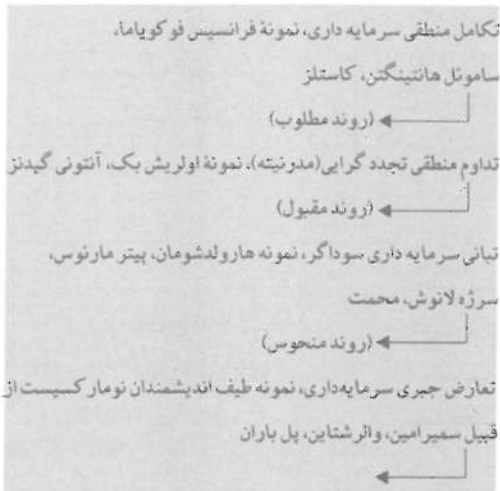 تکامل منطقی سرمایه داری، نمونۀ فرانسیس فوکویاما،
ساموئل هانتینگتن، کاستلز
(روند مطلوب)
تداوم منطقی تجدد گرایی(مدرنیته)، نمونۀ اولریش بک، آنتونی گیدنز
(روند مقبول)
تبانی سرمایه داری سوداگر، نمونه هارولدشومان، پیتر مارتوس،
سرژه لاتوش، محمت
(روند منحوس)
تعارض جبری سرمایه‌داری، نمونه طیف اندیشمندان نومارکسیست از
قبیل سمیرامین، والرشتاین، پل باران